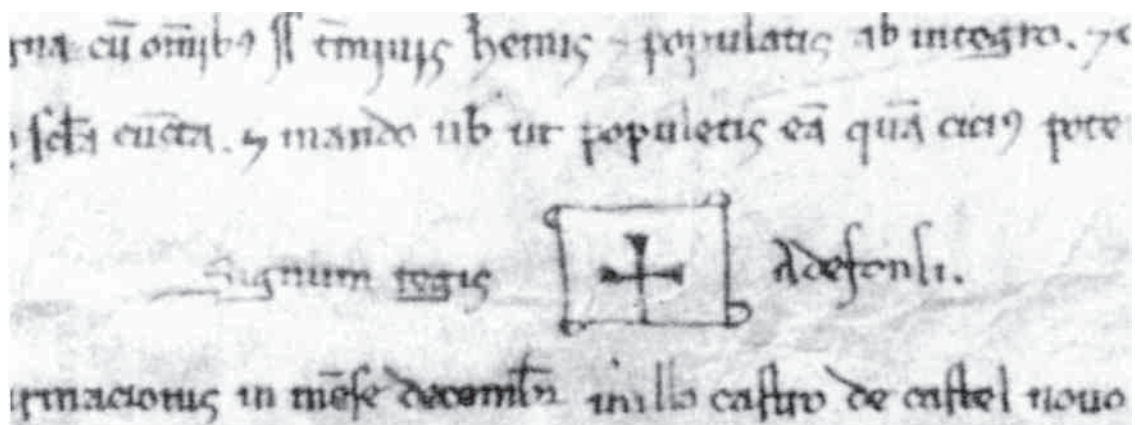 cū om̄ibꝯ t̄miniis hemis ⁊ populatis ab integro. ⁊
sc̄ta cūcta. ⁊ mando ut populetis eā quā cicius pote
Signum regis adefonsi.
in mēse decemb̄r in illo castro de castel nouo